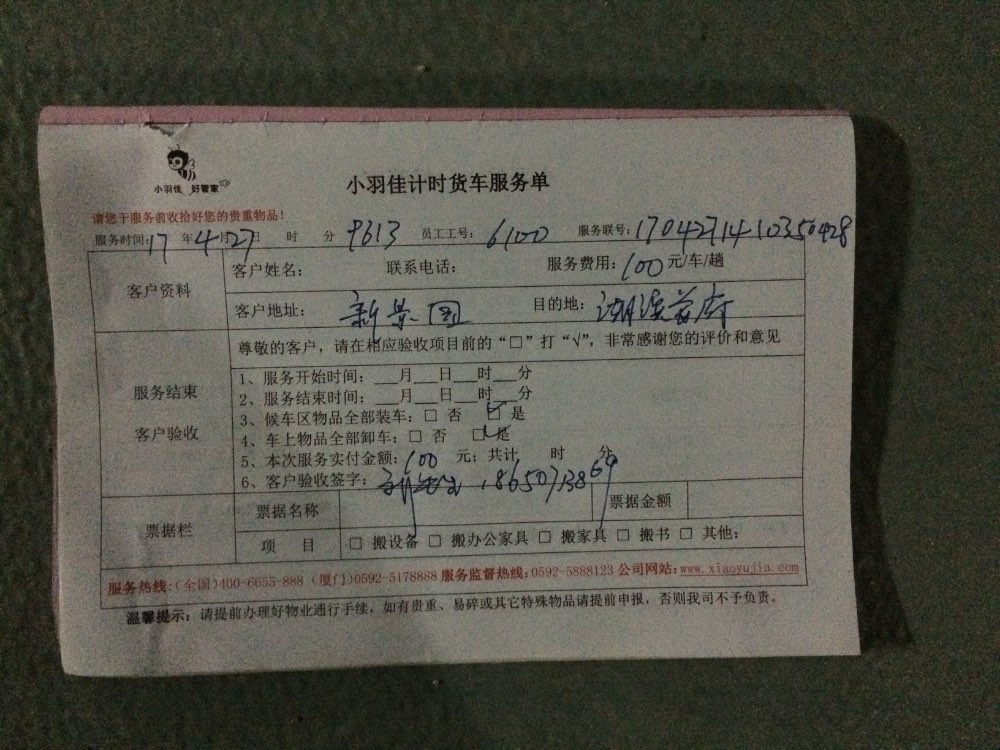 小羽佳 好管家
小羽佳计时货车服务单
请您于服务前收拾好您的贵重物品！
服务时间：17 年 4 月 27 日 时 分 9613 员工工号：6100 服务联号：1704271410350428
客户资料
客户姓名： 联系电话： 服务费用：100 元/车/趟
客户地址： 新景园 目的地： 湖滨首府
服务结束
客户验收
尊敬的客户，请在相应验收项目前的“□”打“√”，非常感谢您的评价和意见
1、服务开始时间：___月___日___时___分
2、服务结束时间：___月___日___时___分
3、候车区物品全部装车：□ 否 ☑ 是
4、车上物品全部卸车：□ 否 ☑ 是
5、本次服务实付金额：100 元；共计 时 分
6、客户验收签字： 18650713869
票据栏
票据名称 票据金额
项 目 □ 搬设备 □ 搬办公家具 □ 搬家具 □ 搬书 □ 其他：
服务热线：(全国)400-6655-888 (厦门)0592-5178888 服务监督热线：0592-5888123 公司网站：www.xiaoyujia.com
温馨提示：请提前办理好物业通行手续，如有贵重、易碎或其它特殊物品请提前申报，否则我司不予负责。